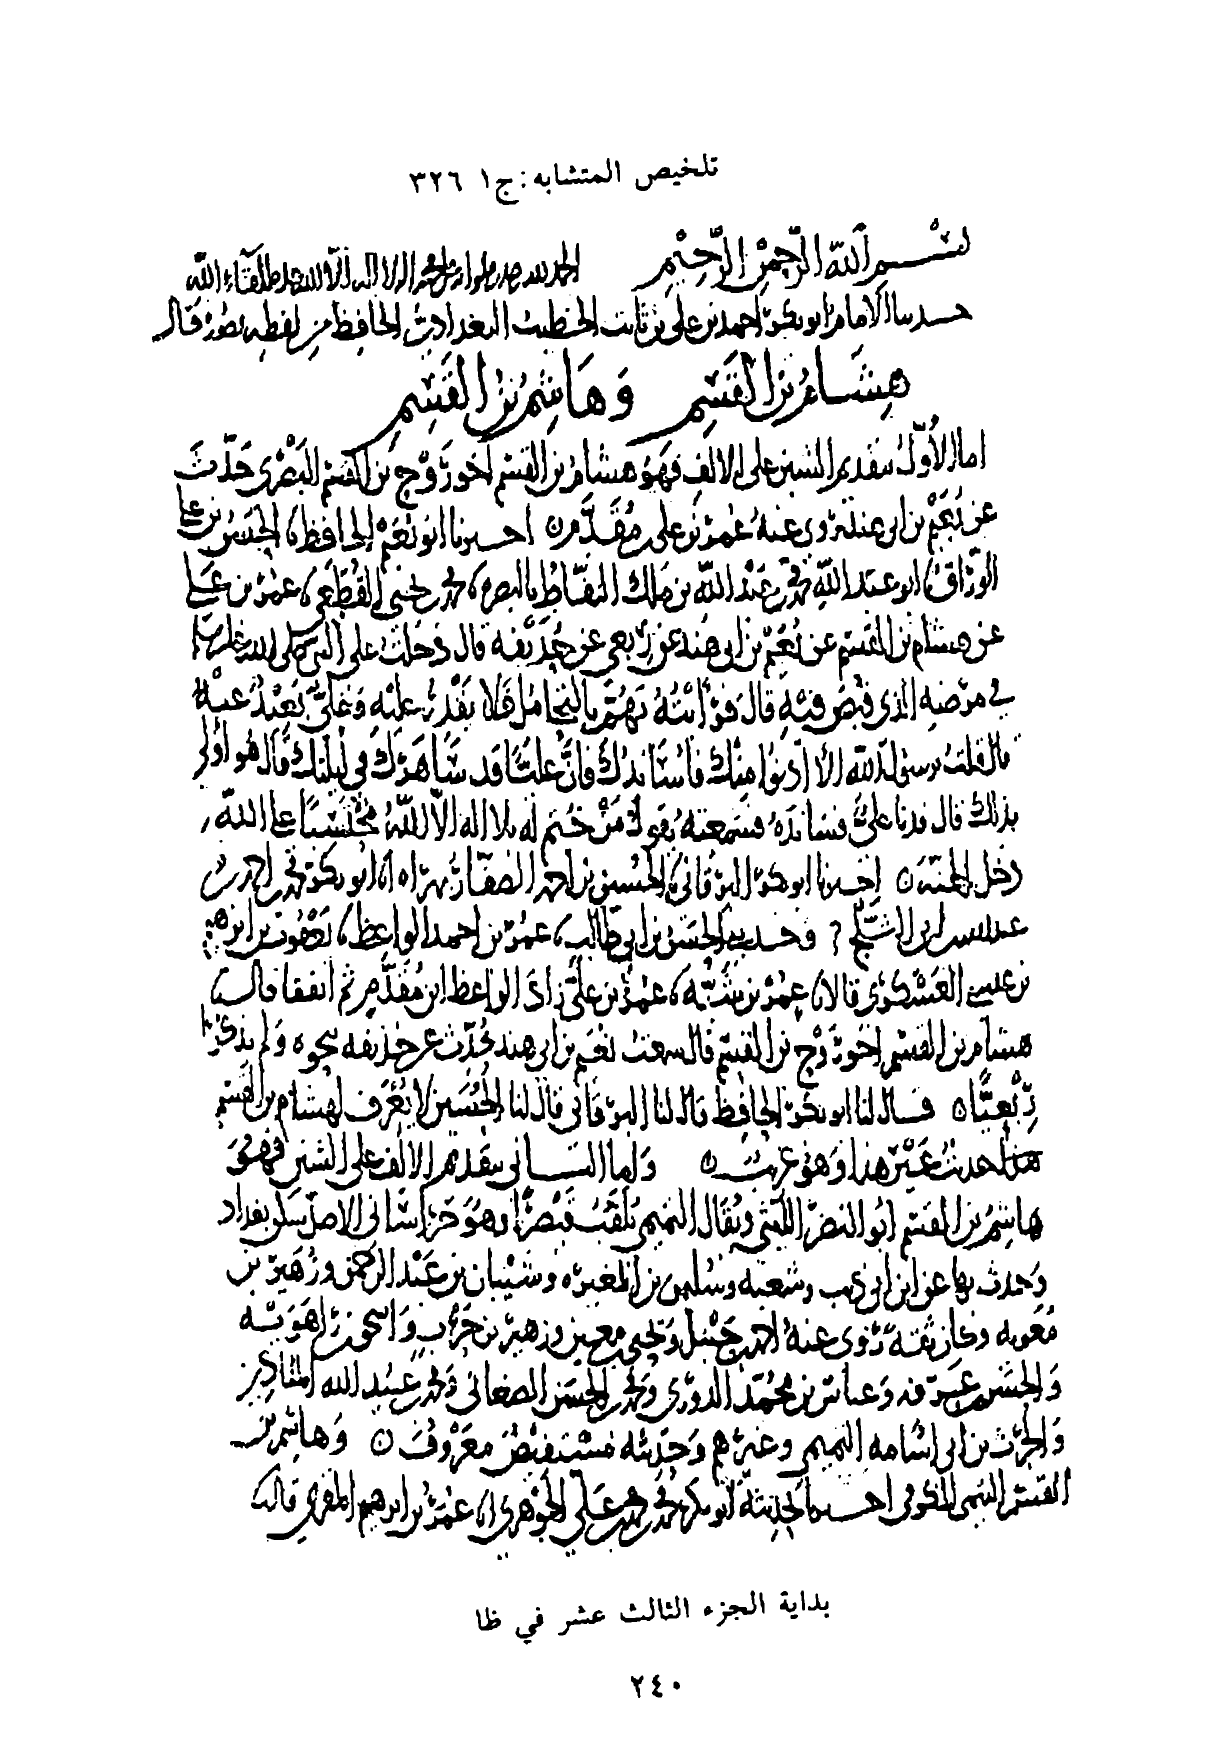 تلخيص المتشابه : ج١ ٣٢٦
بسم الله الرحمن الرحيم الحمد لله لا اله الا الله للقاء الله
حدثنا الامام ابو بكر احمد بن علي بن ثابت الخطيب البغدادي الحافظ من لفظه بصور قال
هشام بن القسم وهاشم بن القسم
اما الأول بتقديم الشين على الالف فهو هشام بن القسم اخو روح بن القسم البصري حدث
عن نعيم بن ابي هند روى عنه عمر بن علي بن مقدم ه اخبرنا ابو نعيم الحافظ نا الحسن بن علي
الوراق نا ابو عبد الله محمد بن عبد الله بن مالك النفاط بالبصرة نا محمد بن يحيى القطعي نا عمر بن علي
عن هشام بن القسم عن نعيم بن ابي هند عن ربعي عن حذيفة قال دخلت على النبي صلى الله عليه
في مرضه الذي قبض فيه قال فرأيته يهم بالتحامل فلا يقدر عليه وعلي بعيد عنه
قال قلت يرسول الله الا ادنوا منك فأساندك فان عليا قد ساهرك في ليلتك قال هو أولى
بذلك قال فدنا علي فسانده فسمعته يقول من ختم له بلا اله الا الله محتسبا على الله
دخل الجنة ه اخبرنا ابو بكر البرقاني نا الحسين بن احمد الصفار بهراه انا ابو بكر محمد بن احمد بن
ابي الثلج ح وحدثني الحسن بن ابي طالب نا عمر بن احمد الواعظ نا يعقوب بن ابرهيم
بن عيسى العسكري قالا نا عمر بن شبه نا عمر بن علي زاد الواعظ ابن مقدم ثم اتفقا قال نا
هشام بن القسم اخو روح بن القسم قال سمعت نعيم بن ابي هند يحدث عن حذيفه نحوه ولم يذكرا
ربعيا ه قال لنا ابو بكر الحافظ قال لنا البرقاني قال لنا الحسين لا يعرف لهشام بن القسم
حديث غير هذا وهو غريب ه واما الثاني بتقديم الالف على الشين فهو
هاشم بن القسم ابو النضر الليثي ويقال التميمي يلقب قيصرا وهو خراساني الاصل سكن بغداد
وحدث بها عن ابن ابي ذيب وشعبه وسليمن بن المغيره وشيبان بن عبد الرحمن وزهير بن
معويه وكان ثقة روى عنه احمد بن حنبل ويحيى بن معين وزهير بن حرب واسحق بن راهويه
والحسن بن عرفه وعباس بن محمد الدوري ومحمد بن الحسن الصغاني ومحمد بن عبيد الله المنادي
والحرث بن ابي اسامه التميمي وغيرهم وحديثه مستفيض معروف ه وهاشم بن
القسم التيمي الكوفي اخبرنا بحديثه ابو بكر محمد بن علي الجوهري انا عمر بن ابرهيم المقري قال نا
بداية الجزء الثالث عشر في ظا
٢٤٠